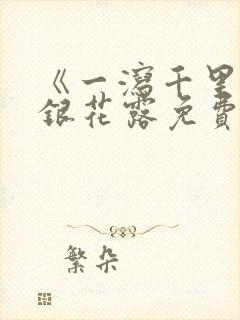 《一瀉千里
銀花露免費
繁朵